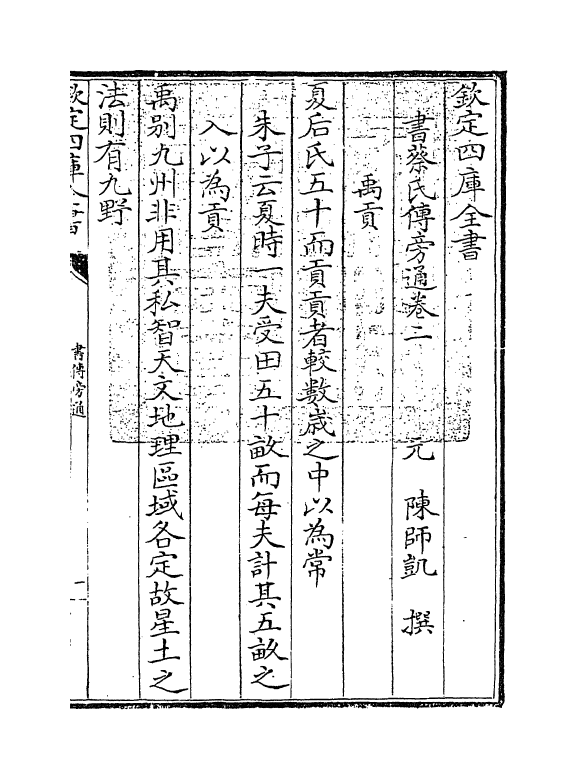 欽定四庫全書
書蔡氏傳旁通卷二　元　陳師凱　撰
禹貢
夏后氏五十而貢貢者較數歳之中以為常
朱子云夏時一夫受田五十畝而每夫計其五畝之
入以為貢
禹别九州非用其私智天文地理區域各定故星土之
法則有九野
欽定四庫全書
書傳旁通
一